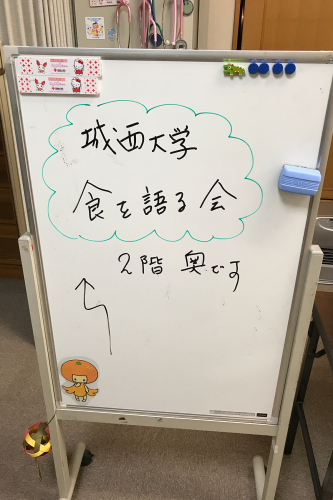 城西大学
食を語る会
2階 奥です